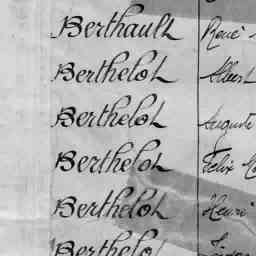 Berthault René
Berthelot Albert
Berthelot Auguste
Berthelot Felix
Berthelot Henri
Berthelot